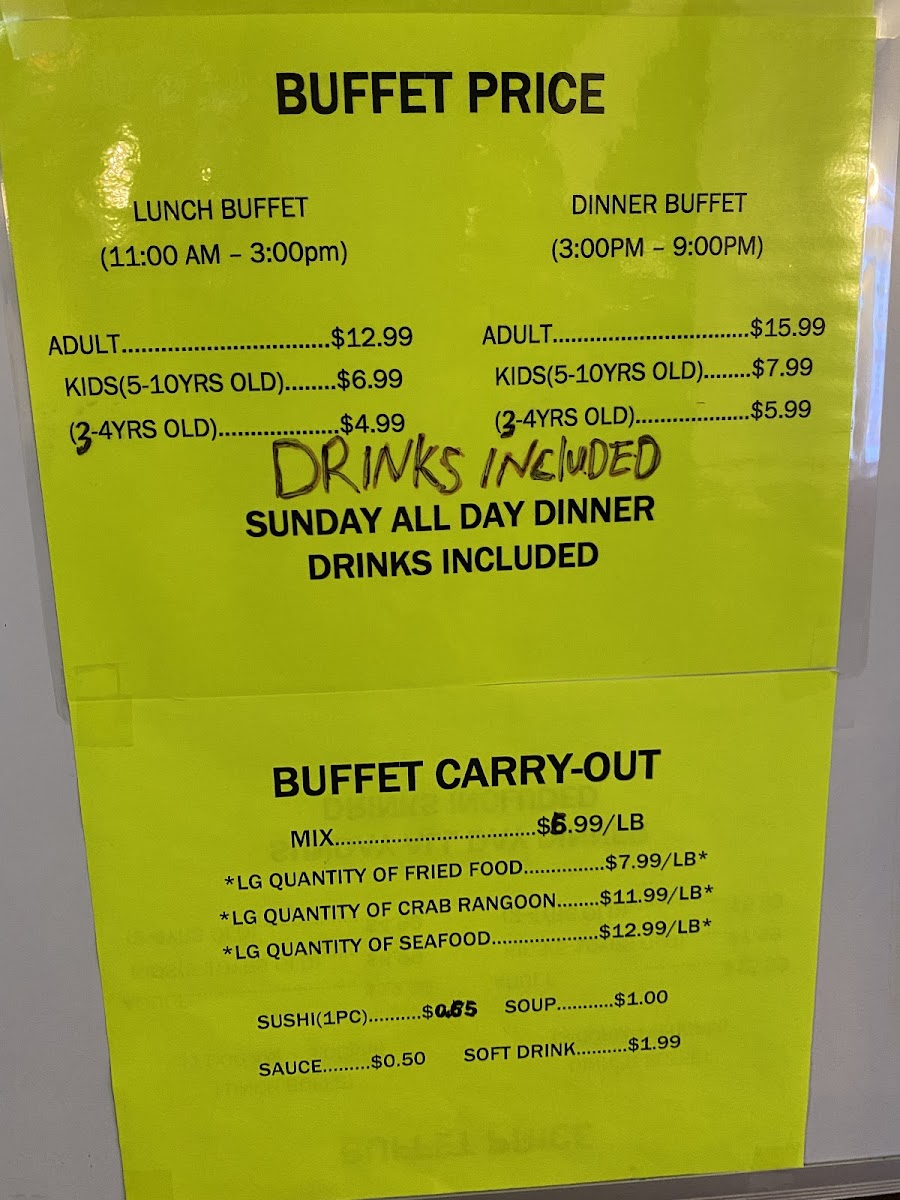 BUFFET PRICE
LUNCH BUFFET
(11:00 AM – 3:00pm)
ADULT................................$12.99
KIDS(5-10YRS OLD)........$6.99
(3-4YRS OLD)...................$4.99
DINNER BUFFET
(3:00PM – 9:00PM)
ADULT..............................$15.99
KIDS(5-10YRS OLD)........$7.99
(3-4YRS OLD)..................$5.99
DRINKS INCLUDED
SUNDAY ALL DAY DINNER
DRINKS INCLUDED
BUFFET CARRY-OUT
MIX................................$6.99/LB
*LG QUANTITY OF FRIED FOOD...............$7.99/LB*
*LG QUANTITY OF CRAB RANGOON........$11.99/LB*
*LG QUANTITY OF SEAFOOD....................$12.99/LB*
SUSHI(1PC)..........$ SOUP...........$1.00
SAUCE.........$0.50 SOFT DRINK..........$1.99